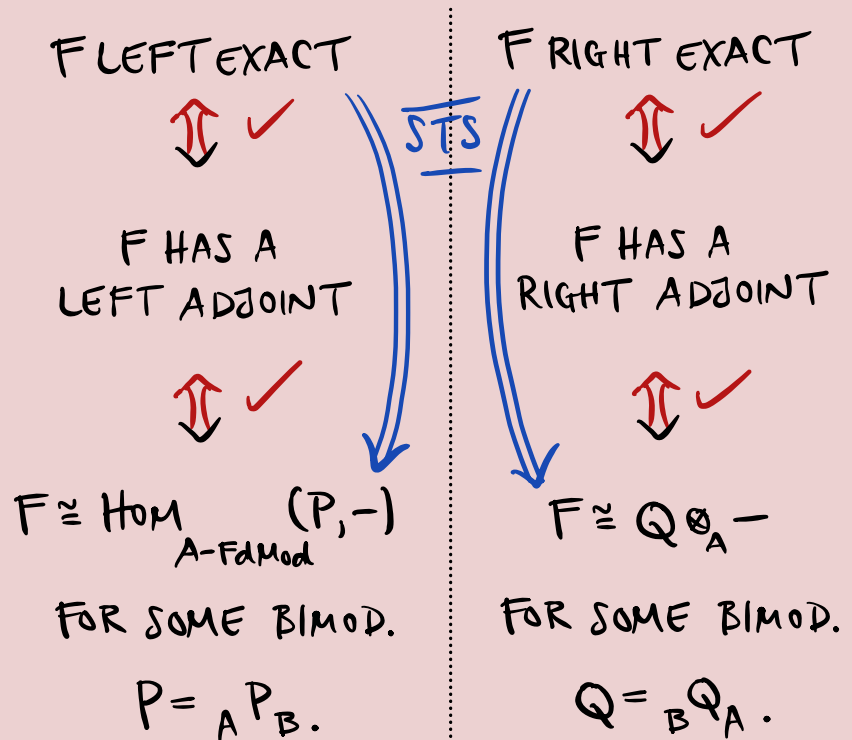 F LEFT EXACT
⇕ ✓
F HAS A
LEFT ADJOINT
⇕ ✓
F ≅ HOM_{A-FdMod} (P, −)
FOR SOME BIMOD.
P = _A P_B.
STS
F RIGHT EXACT
⇕ ✓
F HAS A
RIGHT ADJOINT
⇕ ✓
F ≅ Q ⊗_A −
FOR SOME BIMOD.
Q = _B Q_A.